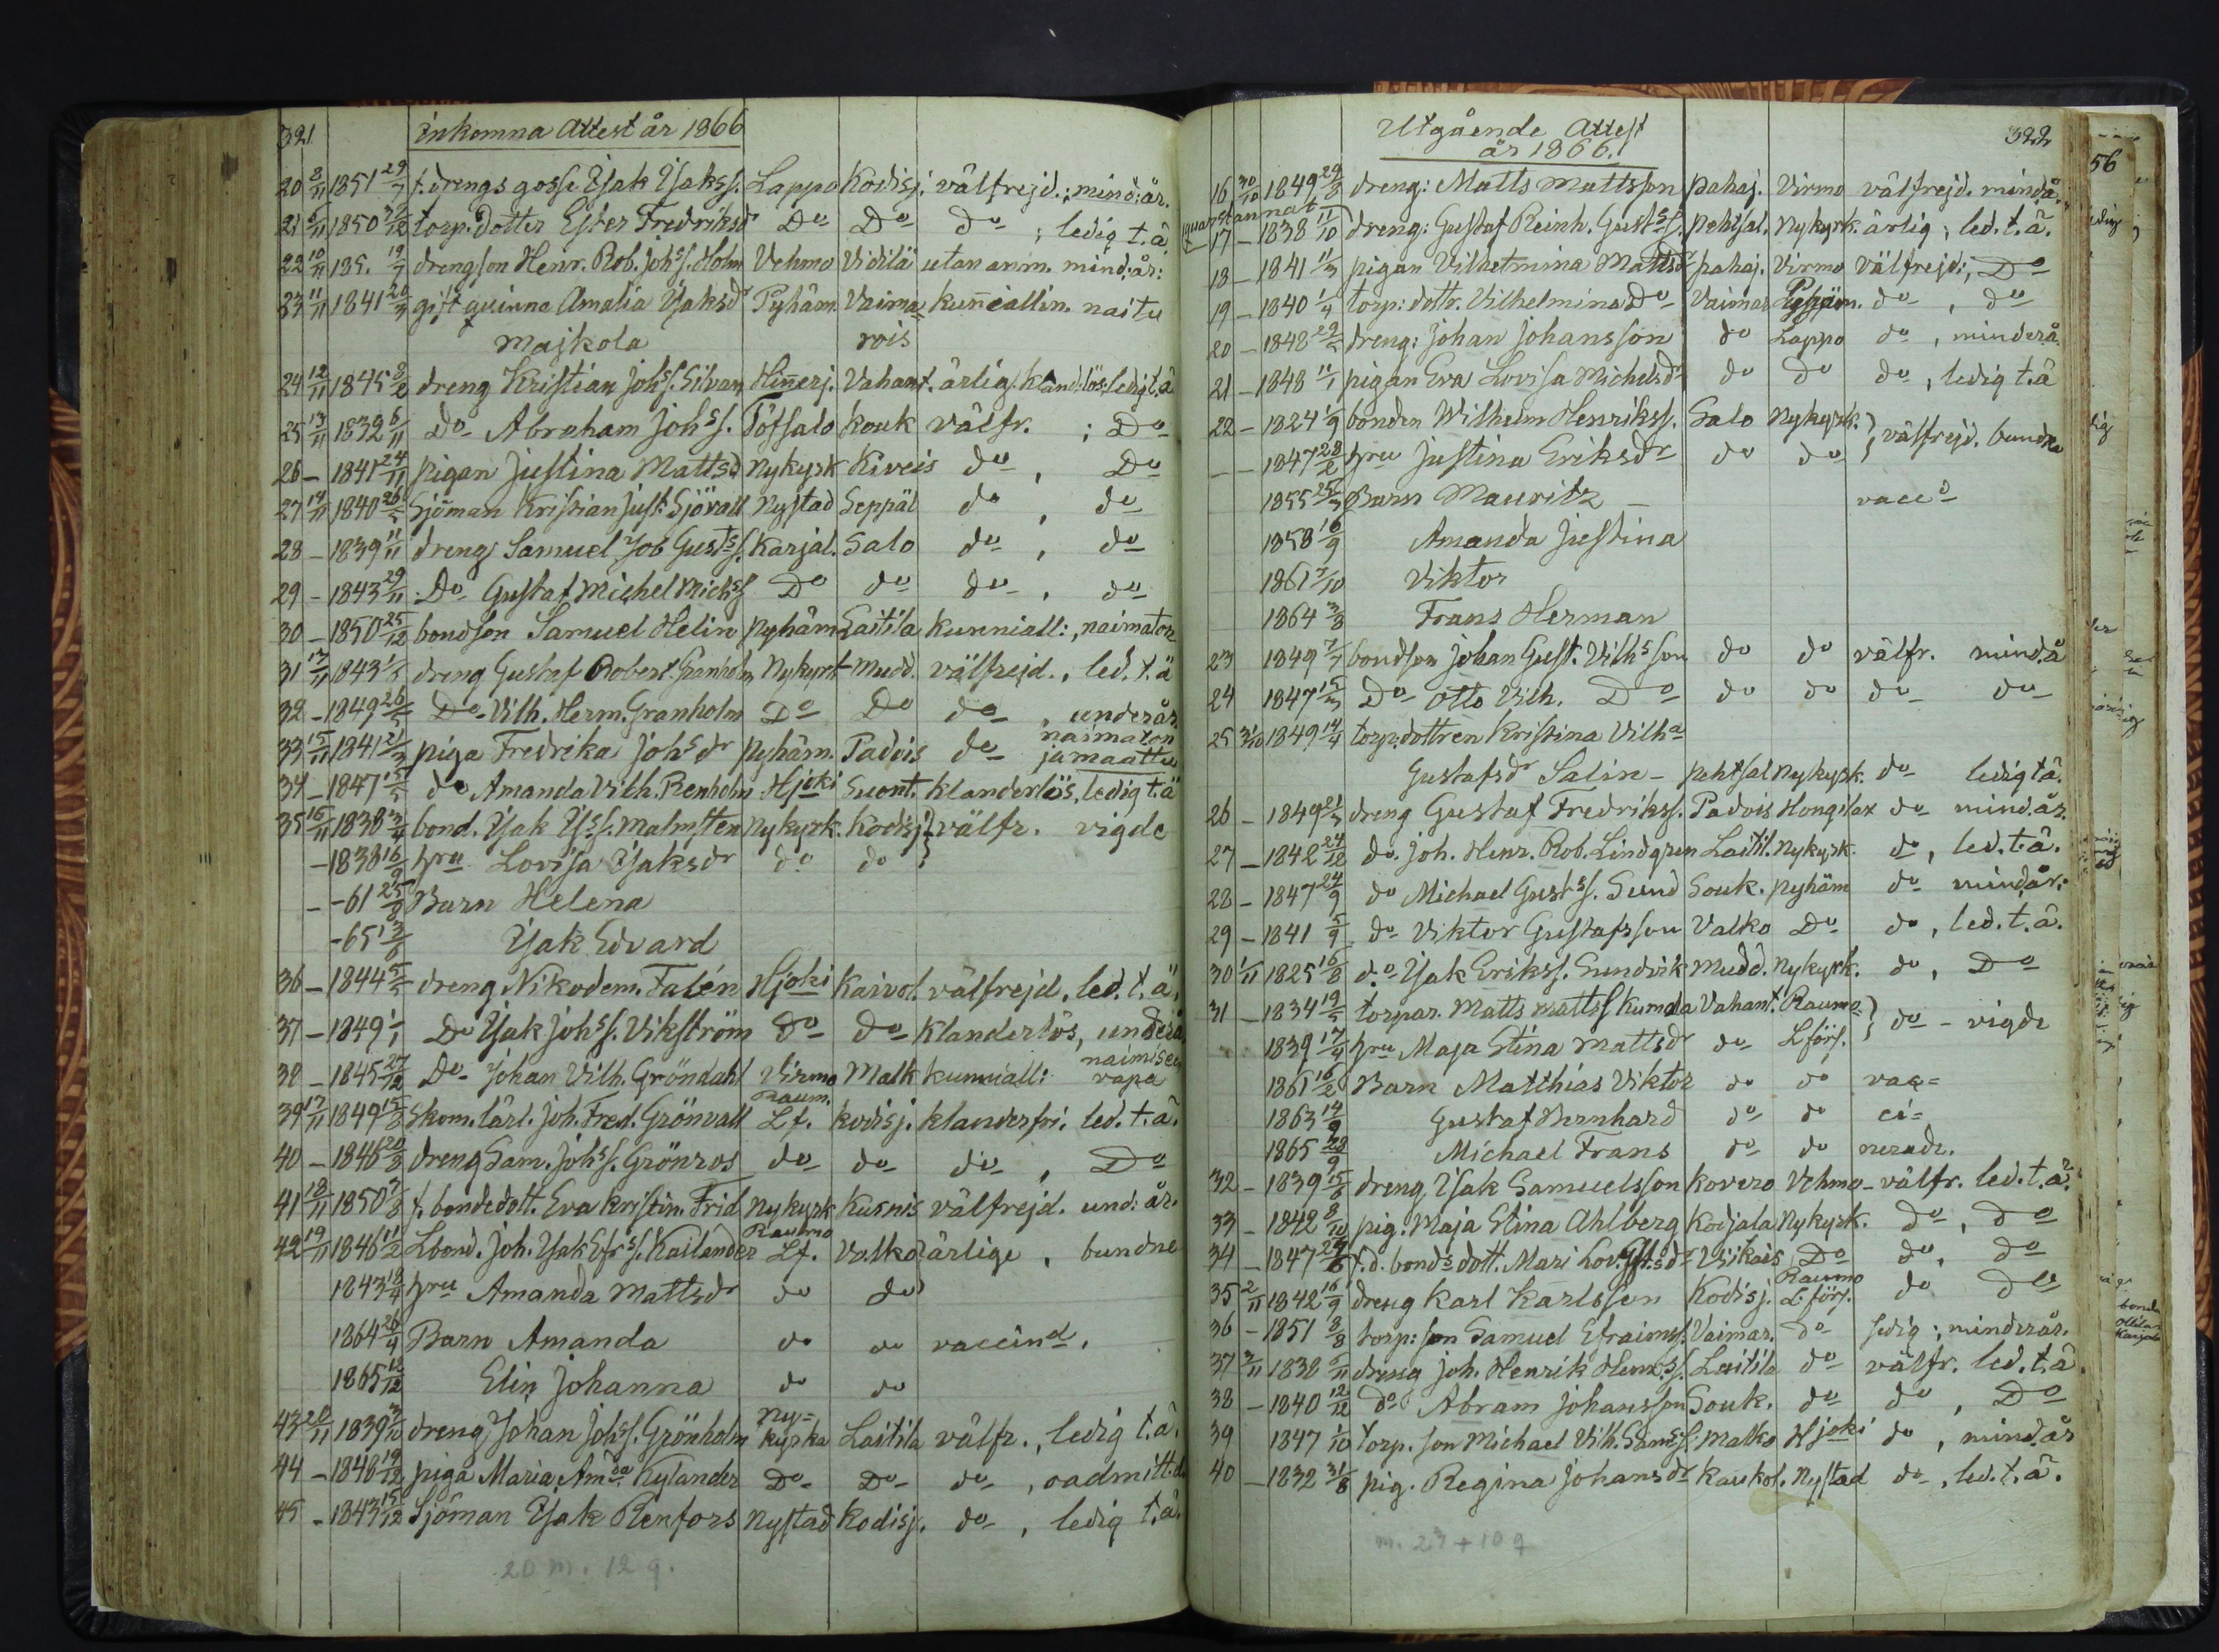 321 Inkomna Attest år 1866
20 8/11 1851 29/7 f. drengs gosse Isak Isakss. Lappo Kodisj. välfrejd.; mind:år.
21 6/11 1850 torp. dotter Ester Fredriksdr Do Do do ; ledig t.ä
22 10/11 185. 19/7 drengson Henr. Rob. Johss. Holm Vehmo Vidilä utan anm. mind:år:
23 11/11 1841 20/3 gift quinna Amalia Isaksdr Pyhäm. Vaima= kunniallin. naitu
Majkola rois
24 12/11 1845 8/2 dreng Kristian Johss. Silvan Hinnerj. Vahant. ärlig. kland:lös. ledig t.ä
25 13/11 1832 6/11 Do Abraham Johss. Töfsalo Kouk välfr. ; Do
26 – 1841 24/11 pigan Justina Mattsd Nykyrk Kiveis do , Do
27 14/11 1840 26/5 Sjöman Kristian Just. Sjövall Nystad Seppäl do , do
28 – 1839 11/11 dreng Samuel Job Gustss. Karjal. Salo do , do
29 – 1843 29/11 Do Gustaf Michel Michss Do do do , do
30 – 1850 25/12 bondson Samuel Helin Pyhäm Laitila kunniall:, naimaton
31 14/11 1843 1/5 dreng Gustaf Robert Granholm Nykyrk Mudd. välfrejd., led. t.ä
32 – 1849 26/5 Do Vilh. Herm. Granholm Do Do do , underår.
33 15/11 1841 21/3 piga Fredrika Johsdr Pyhäm. Padois do naimaton
ja maattu
34 – 1847 15/5 do Amanda Vilh. Renholm Hjoki Suont. klanderlös, ledig t.ä
35 16/11 1838 3/4 bond. Isak Iss. Malmsten Nykyrk. Kodisj } välfr. vigde
– 1838 16/9 hru Lovisa Isaksdr do do }
– -61 25/8 Barn Helena
-65 13/6 Isak Edvard
36 – 1844 5/5 dreng Nikodem. Falén Hjoki Kaivol. välfrejd. led. t.ä.
37 – 1849 1/1 Do Isak Johss. Vikström do do klanderlös, underå
38 – 1845 27/12 Do Johan Vilh. Gröndahl Virmo Malk kunniall: naimisen
vapa
39 17/11 1849 15/8 Skom. lärl. Joh. Fred. Grönvall Raum. Lf. Kodisj. klanderfri. led. t.ä.
40 – 1846 20/8 dreng Sam. Johss. Grönros do do do , Do
41 18/11 1850 3/8 f. bondedott. Eva Kristin. Frid Nykyrk Kusnis välfrejd. und:år.
42 19/11 1846 11/2 Lbond. Joh. Isak Efrss. Kailander Raumo Lf. Valko ärlige , bundne
1843 18/4 hru Amanda Mattsdr do do
1864 26/4 Barn Amanda do do vaccind.
1865 12/12 Elin Johanna do do
43 20/11 1839 3/10 dreng Johan Johss. Grönholm Ny=
kyrka Laitila välfr., ledig t.ä.
44 – 1848 19/12 piga Maria Amda Kylander Do Do do , oadmitt.d
45 – 1843 15/12 Sjöman Isak Renfors Nystad Kodisj. do , ledig t.ä.
20 m. 12 q.
Utgående Attest 322
år 1866.
16 30/10 1849 29/8 dreng: Matts Mattsson Pahaj. Virmo välfrejd. mind.å
quarstannat
17 – 1838 11/10 dreng: Gustaf Reinh. Gustss. Pehtsal. Nykyrk. ärlig, led. t.ä.
18 – 1841 11/3 pigan Vilhelmina Mattsdr Pahaj. Virmo välfrejd:, Do
19 – 1840 1/4 torp: dottr. Vilhelmina Do Vaimar Pyhäm. do , do
20 – 1848 29/5 dreng: Johan Johansson do Lappo do , minderå.
21 – 1848 11/1 pigan Eva Lovisa Michelsdr do do do , ledig t.ä
22 – 1824 1/9 bonden Wilhelm Henrikss. Salo Nykyrk. } välfrejd. bundna
– – 1847 28/2 hru Justina Eriksdr do do }
1855 25/3 Barn Mauritz – vaccd
1858 16/9 Amanda Justina
1861 7/10 Viktor
1864 3/8 Frans Herman
23 1849 7/7 bondson Johan Gust. Vilhsson do do välfr. mind.å
24 1847 15/3 Do Otto Vilh. Do do do do do
25 31/10 1849 14/4 torp:dottren Kristina Vilha
Gustafsdr Salin – Pehtsal Nykyrk. do ledig t.ä.
26 – 1849 21/3 dreng Gustaf Fredrikss. Padois Hongilax do mind.år.
27 – 1842 24/12 do. Joh. Henr. Rob. Lindgren Laitil. Nykyrk. do, led. t.ä.
28 – 1847 24/9 do Michael Gustss. Sund Souk. Pyhäm do mind.år.
29 – 1841 5/9 do Viktor Gustafsson Valko Do do, led. t.ä.
30 1/11 1825 16/8 do Isak Erikss. Sundvik Mudd. Nykyrk. do, Do
31 – 1834 19/5 torpar. Matts Mattss Kumda Vahant. Raumo } do – vigde
1839 17/4 hru Maja Stina Mattsdr do Lförs. }
1861 16/2 Barn Matthias Viktor do do vac=
1863 14/9 Gustaf Bernhard do do ci=
1865 28/9 Michael Frans do do nerade.
32 – 1839 15/6 dreng Isak Samuelsson Kovero Vehmo – välfr. led. t.ä.
33 – 1842 8/10 pig. Maja Stina Ahlberg Kodjala Nykyrk. do, do
34 – 1847 f.d. bonds dott. Mari Lov. Gst.sdr Do do, do
35 2/11 1842 16/9 dreng Karl Karlsson Kodisj. Raumo L. förs. do do
36 – 1851 8/8 torp: son Samuel Efraimss. Vaimar. do sedig; minderår.
37 3/11 1838 5/11 dreng Joh. Henrik Henr.ss. Laitila do välfr. led. t.ä.
38 – 1840 12/12 do Abram Johansson Souk. do do , Do
39 1847 1/10 torp. son Michael Vilh. Samss. Malko Hjoki do , mind.år
40 – 1832 31/8 pig. Regina Johansdr Kaukol. Nystad do, led. t.ä.
m. 23 + 10 q
56